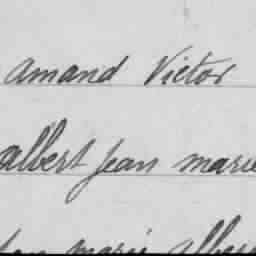 amand Victor
albert Jean marie
marie albert